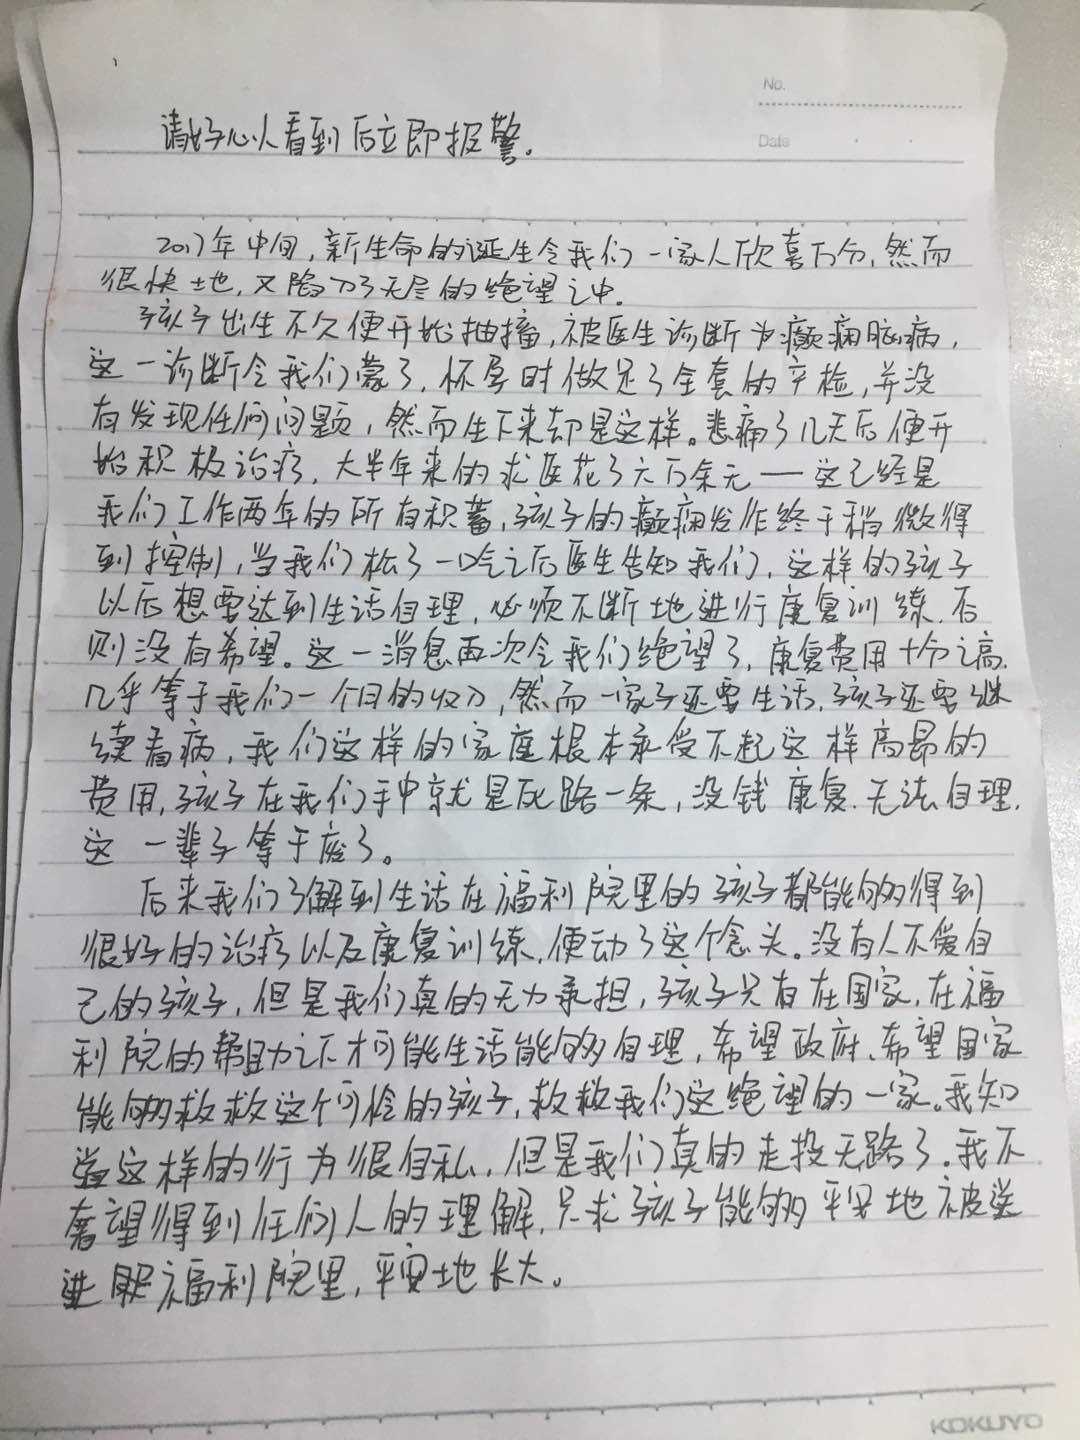 No.
Date
请好心人看到后立即报警。
2017年中旬，新生命的诞生令我们一家人欣喜万分，然而
很快地，又陷入了无尽的绝望之中。
孩子出生不久便开始抽搐，被医生诊断为癫痫脑病，
这一诊断令我们蒙了，怀孕时做足了全套的产检，并没
有发现任何问题，然而生下来却是这样。悲痛了几天后便开
始积极治疗，大半年来的求医花了六万余元——这已经是
我们工作两年的所有积蓄，孩子的癫痫发作终于稍微得
到控制，当我们松了一口气之后医生告知我们，这样的孩子
以后想要达到生活自理，必须不断地进行康复训练，否
则没有希望。这一消息再次令我们绝望了，康复费用十分之高，
几乎等于我们一个月的收入，然而一家子还要生活，孩子还要继
续看病，我们这样的家庭根本承受不起这样高昂的
费用，孩子在我们手中就是死路一条，没钱康复，无法自理，
这一辈子等于废了。
后来我们了解到生活在福利院里的孩子都能够得到
很好的治疗以及康复训练，便动了这个念头。没有人不爱自
己的孩子，但是我们真的无力承担，孩子只有在国家，在福
利院的帮助之下才可能生活能够自理，希望政府、希望国家
能够救救这个可怜的孩子，救救我们这绝望的一家。我知
道这样的行为很自私，但是我们真的走投无路了。我不
奢望得到任何人的理解，只求孩子能够平安地被送
进福利院里，平安地长大。
KOKUYO